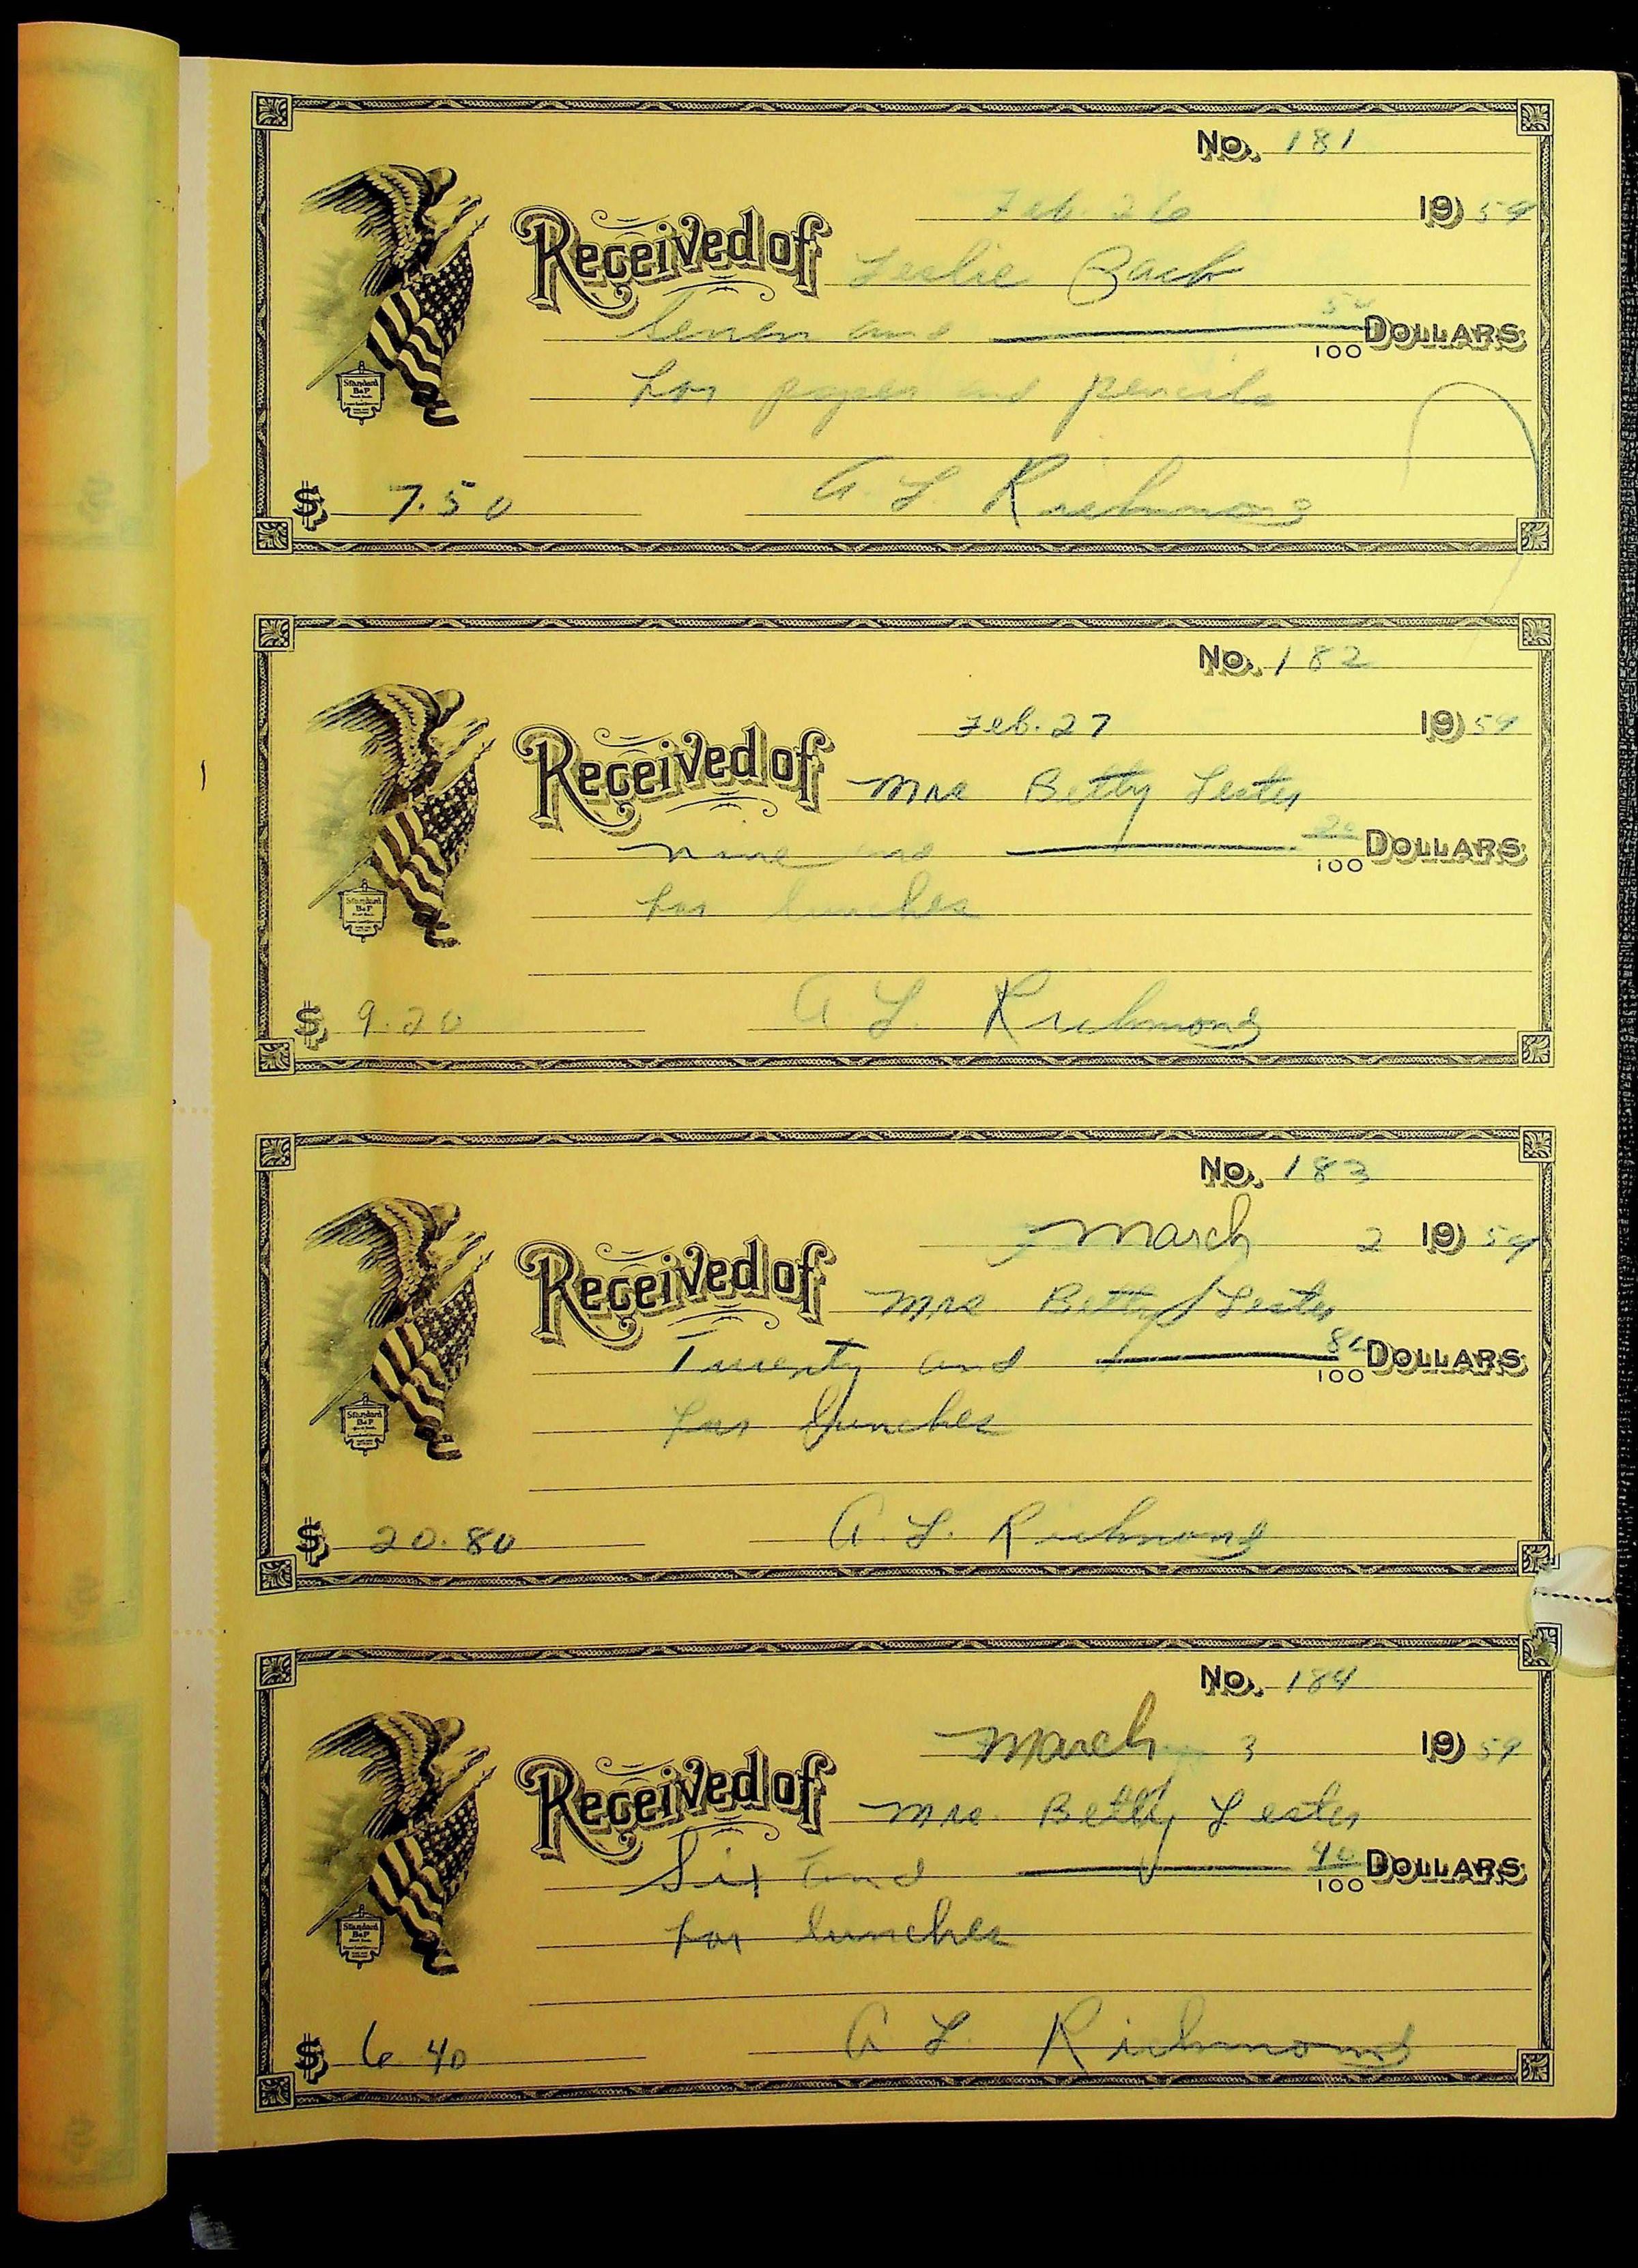 No. 181
Feb. 26 1959
Received of Leslie Back
Seven and 50/100 Dollars
for paper and pencils
$ 7.50 A. L. Richmond
Standard
B&P
No. 182
Feb. 27 1959
Received of Mrs Betty Lester
nine and 20/100 Dollars
for lunches
$ 9.20 A L. Richmond
Standard
B&P
No. 183
March 2 1959
Received of Mrs. Betty Lester
Twenty and 80/100 Dollars
for lunches
$ 20.80 A. L. Richmond
Standard
B&P
No. 184
March 3 1959
Received of Mrs. Betty Lester
Six and 40/100 Dollars
for lunches
$ 6.40 A L. Richmond
Standard
B&P